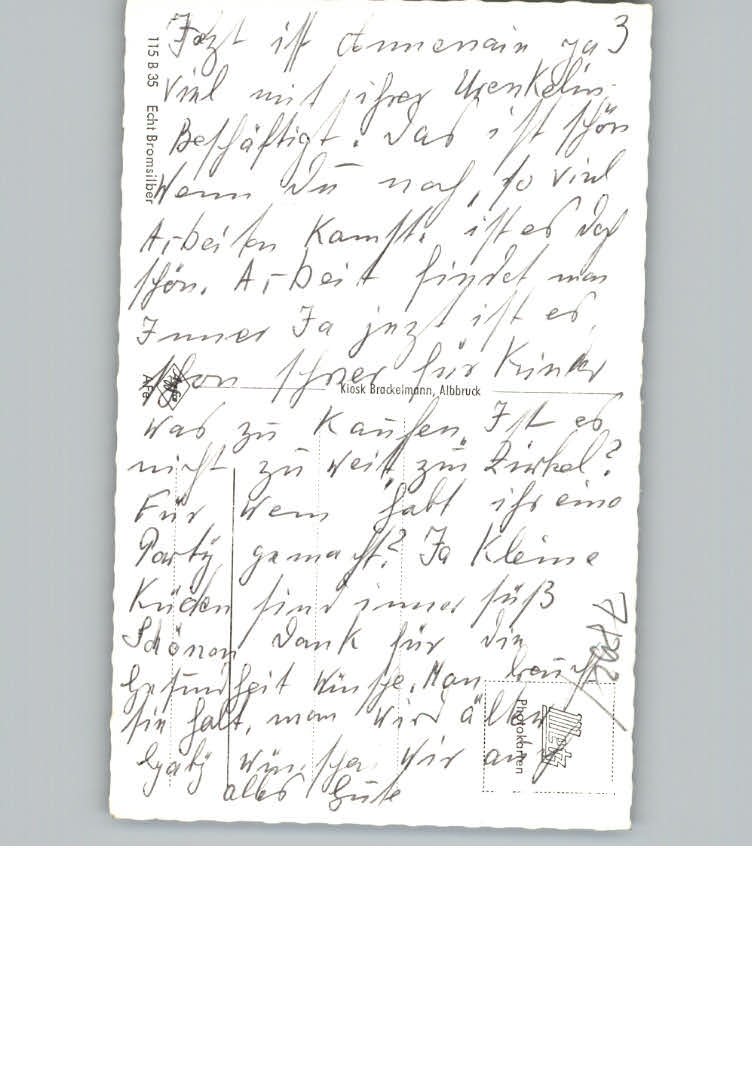 3
Jezt ist Annemain ja
viel mit ihrer Urenkelin
Beschäftigt. Das ist schön
Wenn Du noch, so viel
Arbeiten Kanst. ist es doch
schön. Arbeit findet man
Immer Ja jezt ist es
schon schwer für Kinder
was zu Kaufen. Ist es
nicht zu weit, zum Zirkel?
Für wem habt ihr eine
Party gemacht? Ja Kleine
Küken sind immer süß
Schönen Dank für die
Gesundheit Wünsche. Man braucht
sie halt, man wird älter
Gaby wünschen wir auch
alles Gute
115 B 35 Echt Bromsilber
Afa
Kiosk Brackelmann, Albbruck
Metz
Photokarten